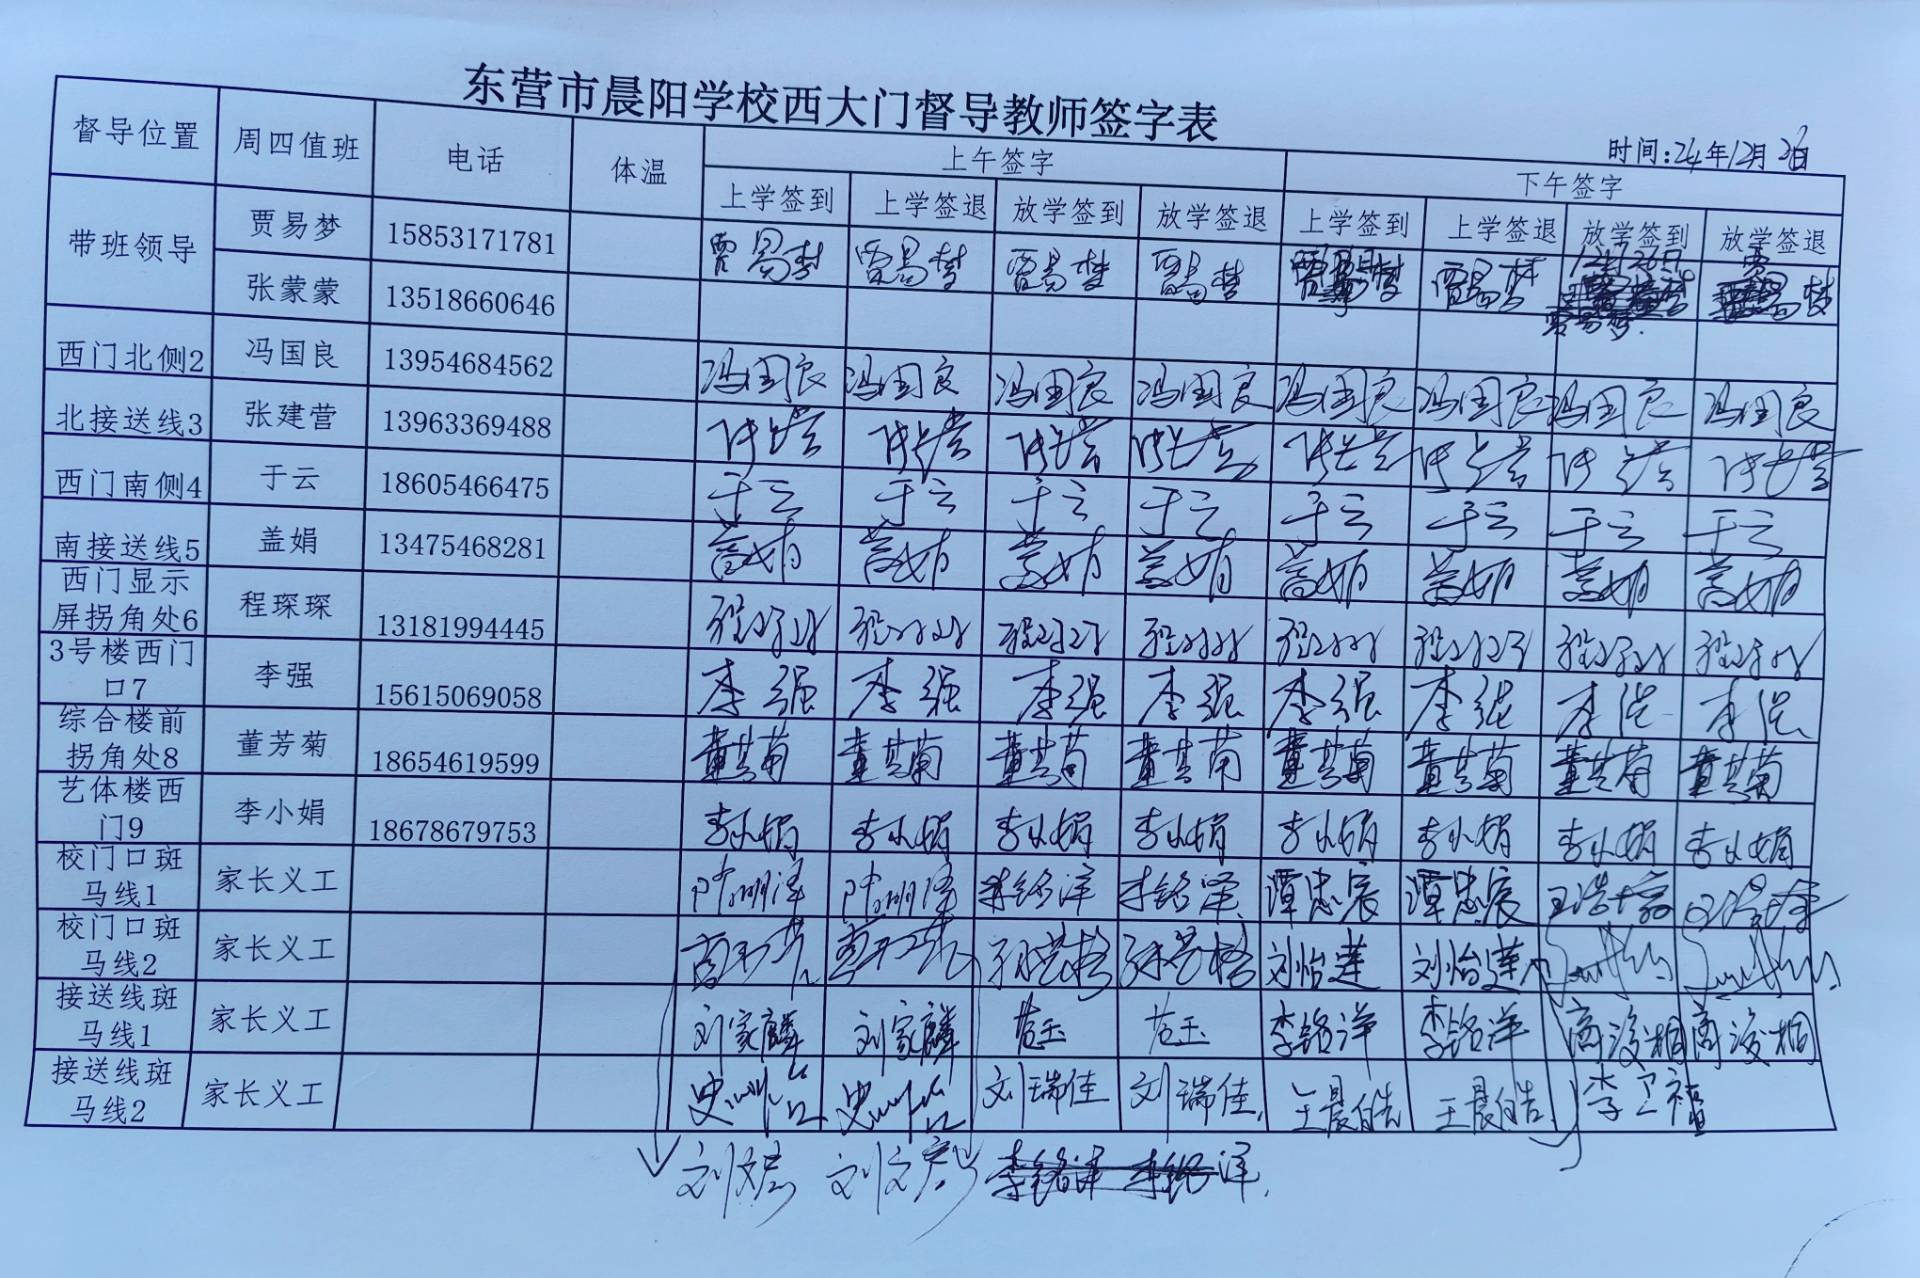 东营市晨阳学校西大门督导教师签字表
时间:24年12月26日
督导位置 周四值班 电话 体温 上午签字 下午签字
上学签到 上学签退 放学签到 放学签退 上学签到 上学签退 放学签到 放学签退
带班领导 贾易梦 15853171781 贾易梦 贾易梦 贾易梦 贾易梦 贾易梦 贾易梦
张蒙蒙 13518660646
西门北侧2 冯国良 13954684562 冯国良 冯国良 冯国良 冯国良 冯国良 冯国良 冯国良 冯国良
北接送线3 张建营 13963369488
西门南侧4 于云 18605466475 于云 于云 于云 于云 于云 于云 于云 于云
南接送线5 盖娟 13475468281 盖娟 盖娟 盖娟 盖娟 盖娟 盖娟 盖娟 盖娟
西门显示
屏拐角处6 程琛琛 13181994445 程琛琛 程琛琛 程琛琛 程琛琛 程琛琛 程琛琛 程琛琛 程琛琛
3号楼西门
口7 李强 15615069058 李强 李强 李强 李强 李强 李强 李强 李强
综合楼前
拐角处8 董芳菊 18654619599 董芳菊 董芳菊 董芳菊 董芳菊 董芳菊 董芳菊 董芳菊 董芳菊
艺体楼西
门9 李小娟 18678679753 李小娟 李小娟 李小娟 李小娟 李小娟 李小娟 李小娟 李小娟
校门口斑
马线1 家长义工 李铭洋 李铭洋 谭忠宸 谭忠宸
校门口斑
马线2 家长义工 刘怡莲 刘怡莲
接送线斑
马线1 家长义工 刘家麟 刘家麟 范玉 范玉 李铭洋 李铭洋 商浚桐 商浚桐
接送线斑
马线2 家长义工 刘瑞佳 刘瑞佳 王晨皓 王晨皓 李卫禧
李铭洋 李铭洋